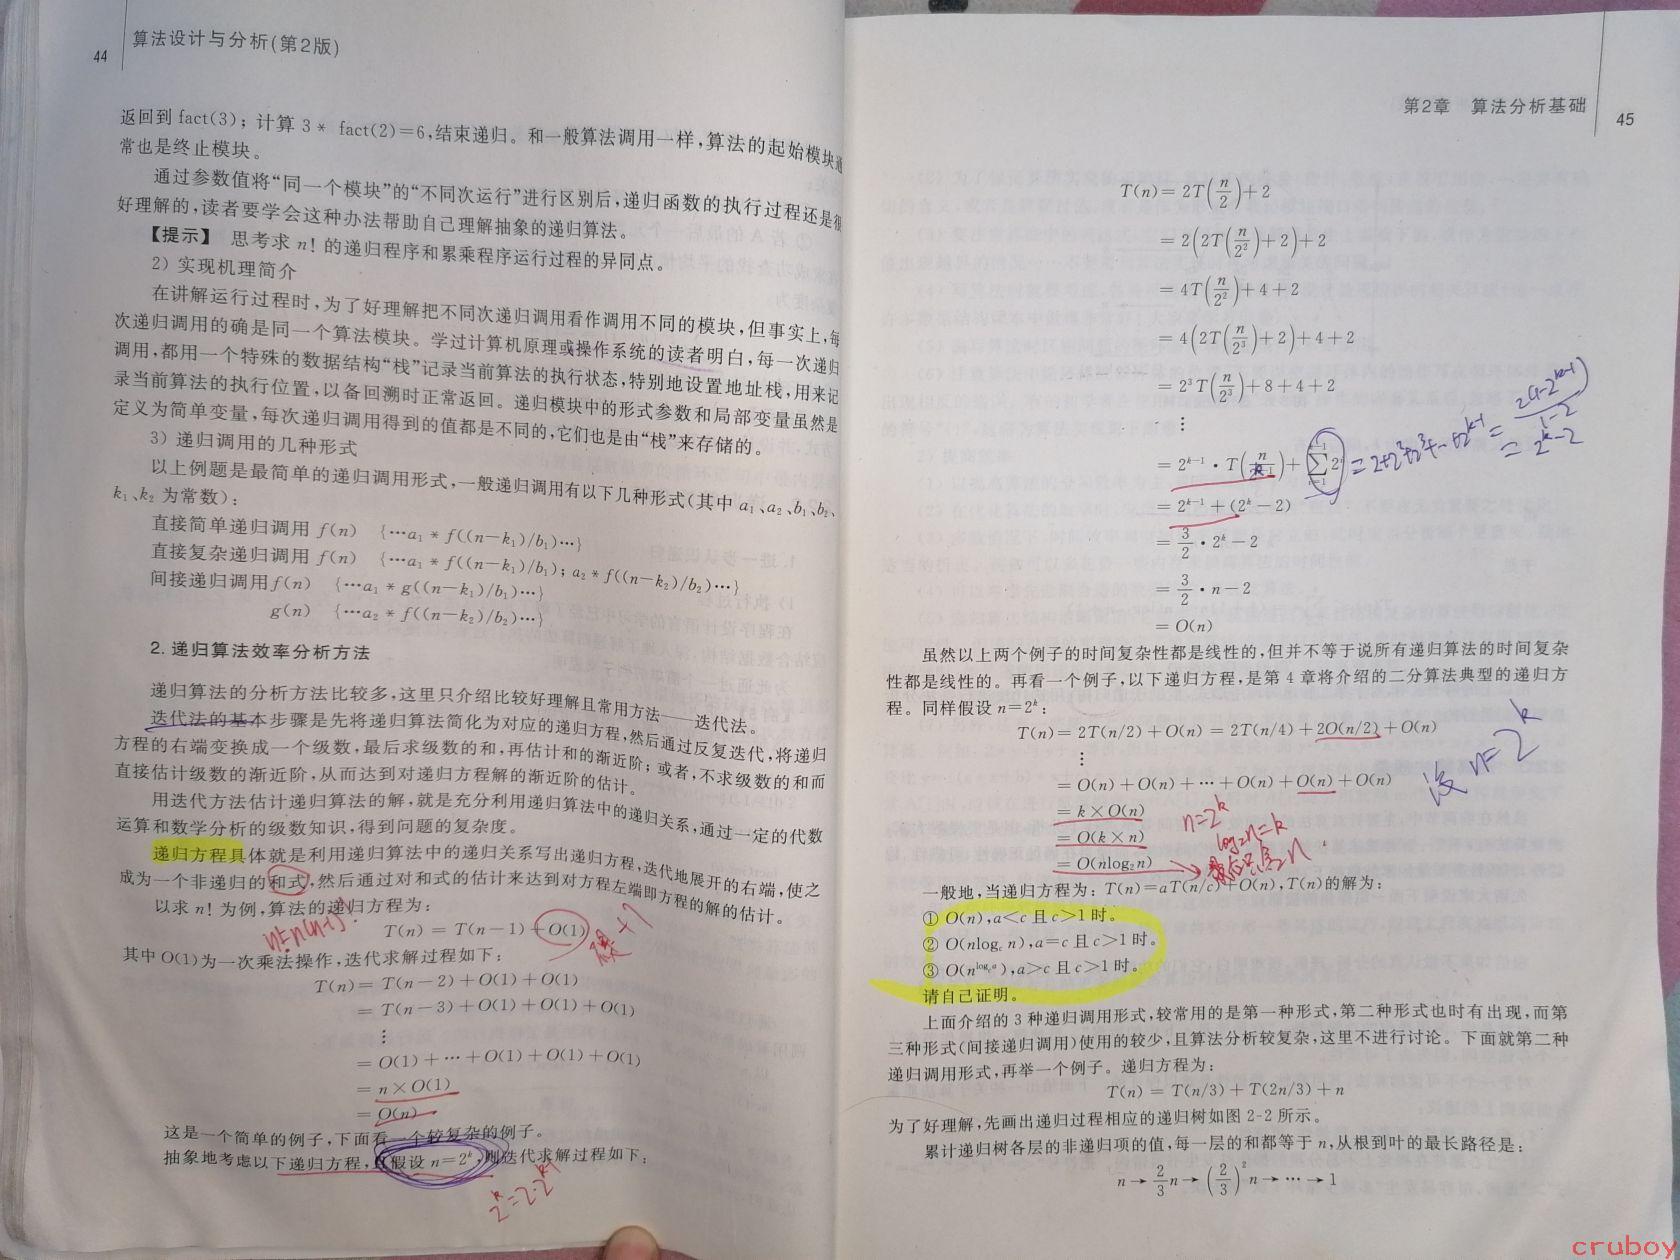 44
算法设计与分析(第2版)
返回到 fact(3); 计算 3* fact(2)=6,结束递归。和一般算法调用一样,算法的起始模块通
常也是终止模块。
通过参数值将“同一个模块”的“不同次运行”进行区别后,递归函数的执行过程还是很
好理解的,读者要学会这种办法帮助自己理解抽象的递归算法。
【提示】 思考求 n! 的递归程序和累乘程序运行过程的异同点。
2) 实现机理简介
在讲解运行过程时,为了好理解把不同次递归调用看作调用不同的模块,但事实上,每
次递归调用的确是同一个算法模块。学过计算机原理或操作系统的读者明白,每一次递归
调用,都用一个特殊的数据结构“栈”记录当前算法的执行状态,特别地设置地址栈,用来记
录当前算法的执行位置,以备回溯时正常返回。递归模块中的形式参数和局部变量虽然是
定义为简单变量,每次递归调用得到的值都是不同的,它们也是由“栈”来存储的。
3) 递归调用的几种形式
以上例题是最简单的递归调用形式,一般递归调用有以下几种形式(其中 a₁、a₂、b₁、b₂、
k₁、k₂ 为常数):
直接简单递归调用 f(n) {…a₁ * f((n−k₁)/b₁)…}
直接复杂递归调用 f(n) {…a₁ * f((n−k₁)/b₁); a₂ * f((n−k₂)/b₂)…}
间接递归调用f(n) {…a₁ * g((n−k₁)/b₁)…}
g(n) {…a₂ * f((n−k₂)/b₂)…}
2. 递归算法效率分析方法
递归算法的分析方法比较多,这里只介绍比较好理解且常用方法——迭代法。
迭代法的基本步骤是先将递归算法简化为对应的递归方程,然后通过反复迭代,将递归
方程的右端变换成一个级数,最后求级数的和,再估计和的渐近阶;或者,不求级数的和而
直接估计级数的渐近阶,从而达到对递归方程解的渐近阶的估计。
用迭代方法估计递归算法的解,就是充分利用递归算法中的递归关系,通过一定的代数
运算和数学分析的级数知识,得到问题的复杂度。
递归方程具体就是利用递归算法中的递归关系写出递归方程,迭代地展开的右端,使之
成为一个非递归的和式,然后通过对和式的估计来达到对方程左端即方程的解的估计。
以求 n! 为例,算法的递归方程为:
n!=n(n-1)!
T(n) = T(n−1)+O(1)
其中 O(1)为一次乘法操作,迭代求解过程如下:
T(n)= T(n−2)+O(1)+O(1)
= T(n−3)+O(1)+O(1)+O(1)
⋮
= O(1)+…+O(1)+O(1)+O(1)
= n×O(1)
= O(n)
这是一个简单的例子,下面看一个较复杂的例子。
抽象地考虑以下递归方程,且假设 n=2ᵏ,则迭代求解过程如下:
2ᵏ=2·2ᵏ⁻¹
第2章 算法分析基础
45
T(n)= 2T(n/2)+2
= 2(2T(n/2²)+2)+2
= 4T(n/2²)+4+2
= 4(2T(n/2³)+2)+4+2
= 2³T(n/2³)+8+4+2
⋮
= 2ᵏ⁻¹·T(n/2ᵏ⁻¹)+∑_{i=1}^{k−1} 2ⁱ =2+2²+2³+…+2ᵏ⁻¹ = 2(1-2ᵏ⁻¹)/(1-2)
= 2ᵏ-2
= 2ᵏ⁻¹+(2ᵏ−2)
= 3/2·2ᵏ−2
= 3/2·n−2
= O(n)
虽然以上两个例子的时间复杂性都是线性的,但并不等于说所有递归算法的时间复杂
性都是线性的。再看一个例子,以下递归方程,是第 4 章将介绍的二分算法典型的递归方
程。同样假设 n=2ᵏ:
T(n)= 2T(n/2)+O(n) = 2T(n/4)+2O(n/2)+O(n)
⋮
= O(n)+O(n)+…+O(n)+O(n)+O(n)
设 n=2ᵏ
= k×O(n)
n=2ᵏ
= O(k×n)
log₂n=k
= O(nlog₂n)
一般地,当递归方程为: T(n)=aT(n/c)+O(n),T(n)的解为:
① O(n),a<c 且 c>1 时。
② O(nlog_c n),a=c 且 c>1 时。
③ O(n^{log_c a}),a>c 且 c>1 时。
请自己证明。
上面介绍的 3 种递归调用形式,较常用的是第一种形式,第二种形式也时有出现,而第
三种形式(间接递归调用)使用的较少,且算法分析较复杂,这里不进行讨论。下面就第二种
递归调用形式,再举一个例子。递归方程为:
T(n) = T(n/3)+T(2n/3)+n
为了好理解,先画出递归过程相应的递归树如图 2-2 所示。
累计递归树各层的非递归项的值,每一层的和都等于 n,从根到叶的最长路径是:
n→2/3 n→(2/3)² n→…→1
cruboy